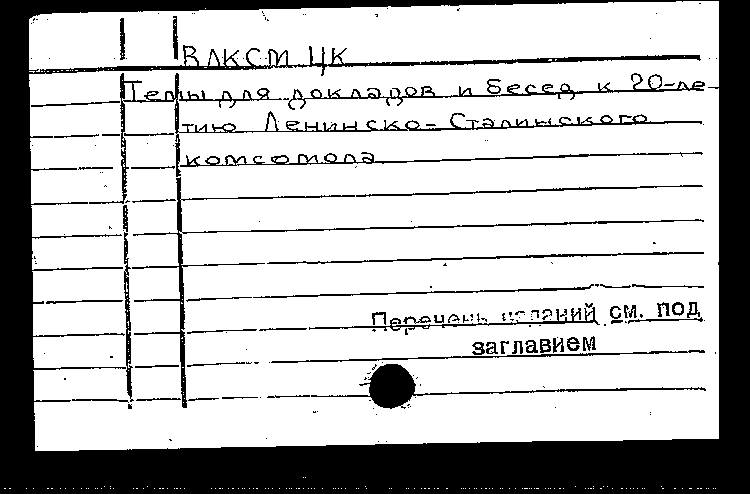 ВЛКСМ ЦК
Темы для докладов и бесед к 20-ле-
тию Ленинско-Сталинского
комсомола
Перечень изданий см. под
заглавием